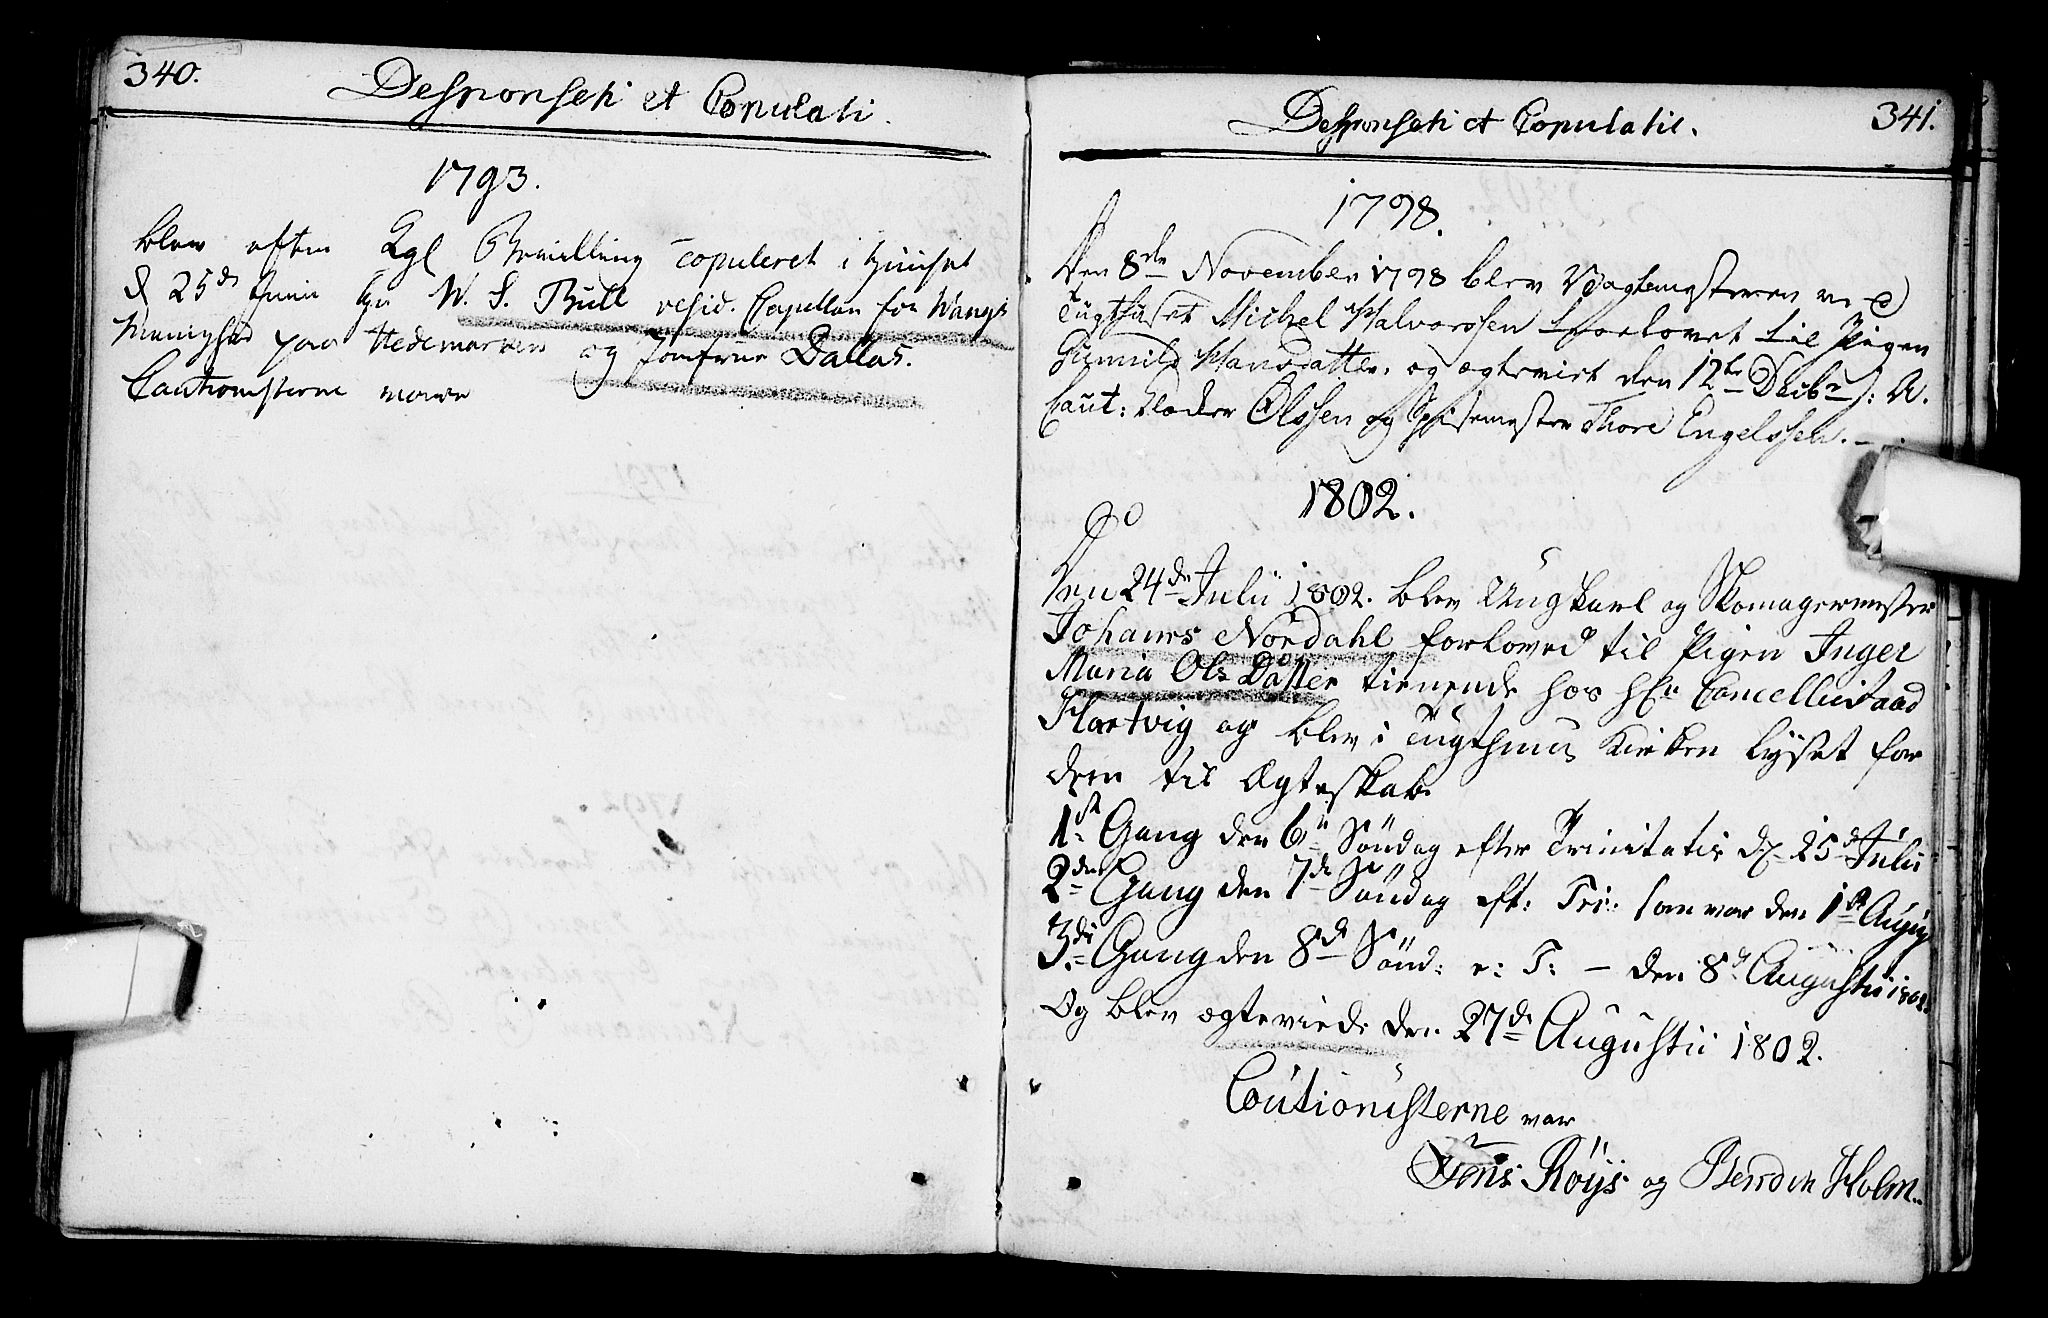 340.
Desponsati et Copulati.
1793.
blev efter Kgl Bevilling copuleret i Huuset
d 25de Junii Hr W. S. Bull resid. Capellan for Wangs
Menighed paa Hedemarken og Jomfrue Dallas.
Cautionisterne waren
Desponsati et Copulatie.
341.
1798.
Den 8de November 1798 blev Vagtmesteren ved
Tugthuset Michel Halvorssen trolovet til Pigen
Gunnild Hansdatter, og ægteviet den 12te Decbr s: A.
Caut: Olssen og Spisemester Thore Engelssen.
1802.
Den 24de Julii 1802. blev Ungkarl og Skomagermester
Johanes Nordahl forloved til Pigen Inger
Maria Ols Datter tienende hos Hr Cancellieraad
Hartvig og blev i Tugthuus Kirken lyset for
dem til Ægteskab.
1ste Gang den 6te Søndag efter Trinitatis d. 25de Julii
2den Gang den 7de Søndag eft: Tri: som var den 1ste Augusti
3die Gang den 8de Sönd: e: T: – den 8de Augustii 1802.
Og blev ægteviede den 27de Augustii 1802.
Coutionisterne var
Jens Röys og Bendix Holm.